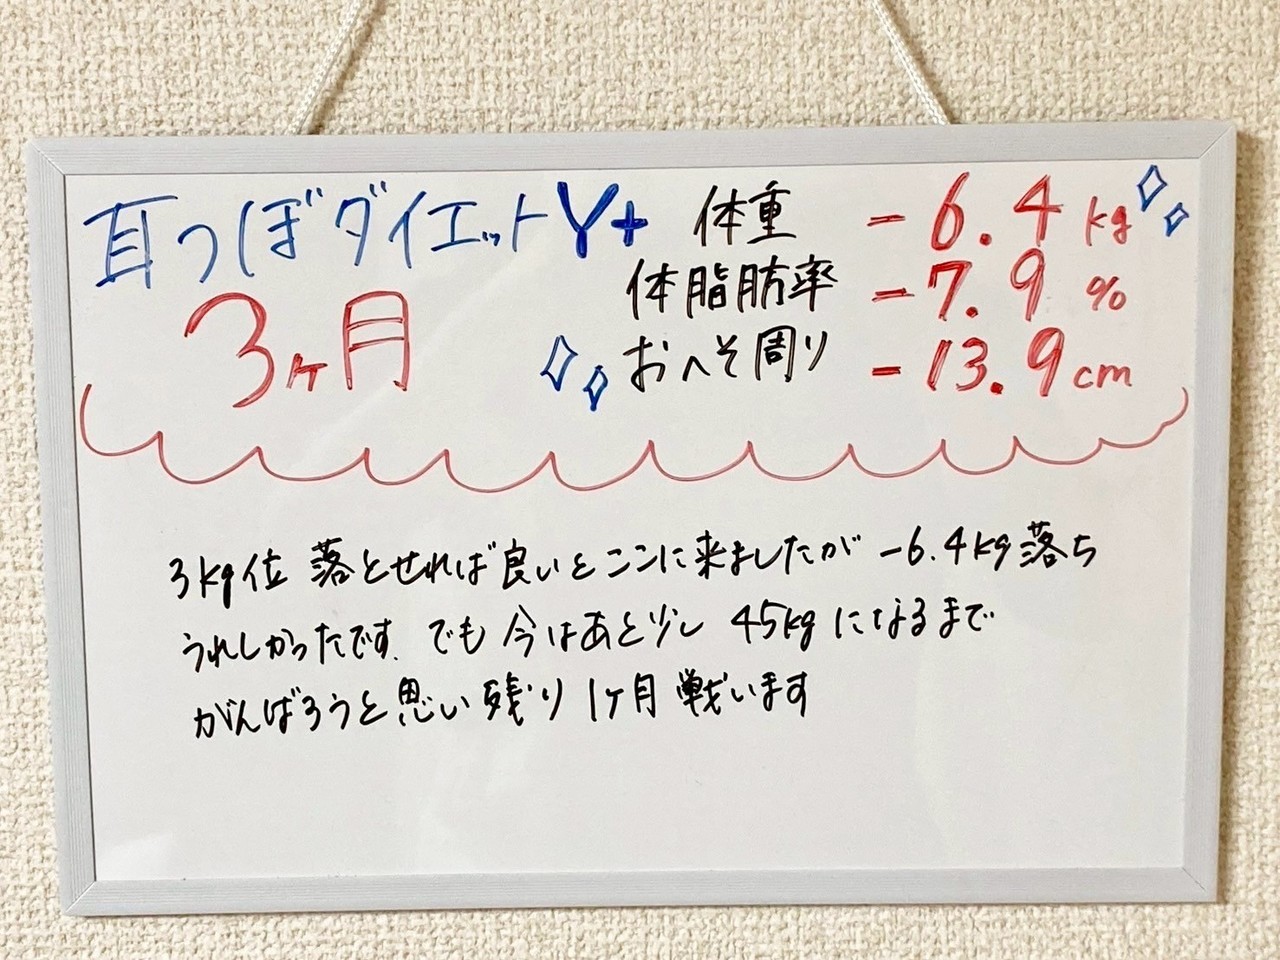 耳つぼダイエットY+
3ヶ月
体重 -6.4kg
体脂肪率 -7.9%
おへそ周り -13.9cm
3kg位 落とせれば良いとここに来ましたが -6.4kg落ち
うれしかったです。でも 今はあと少し 45kgになるまで
がんばろうと思い残り 1ヶ月 戦います